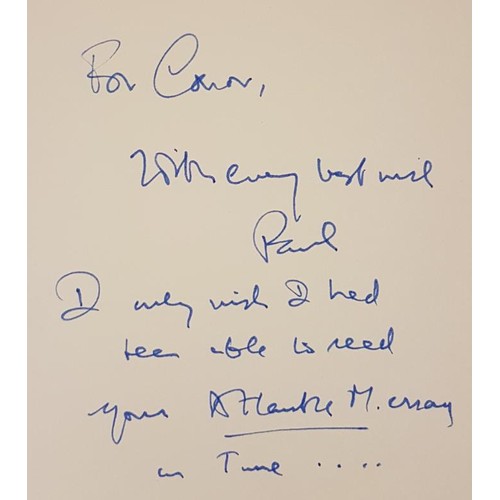 For Conor,
With every best wish
Paul
I only wish I had
been able to read
your Atlantic M. essay
in Time ....